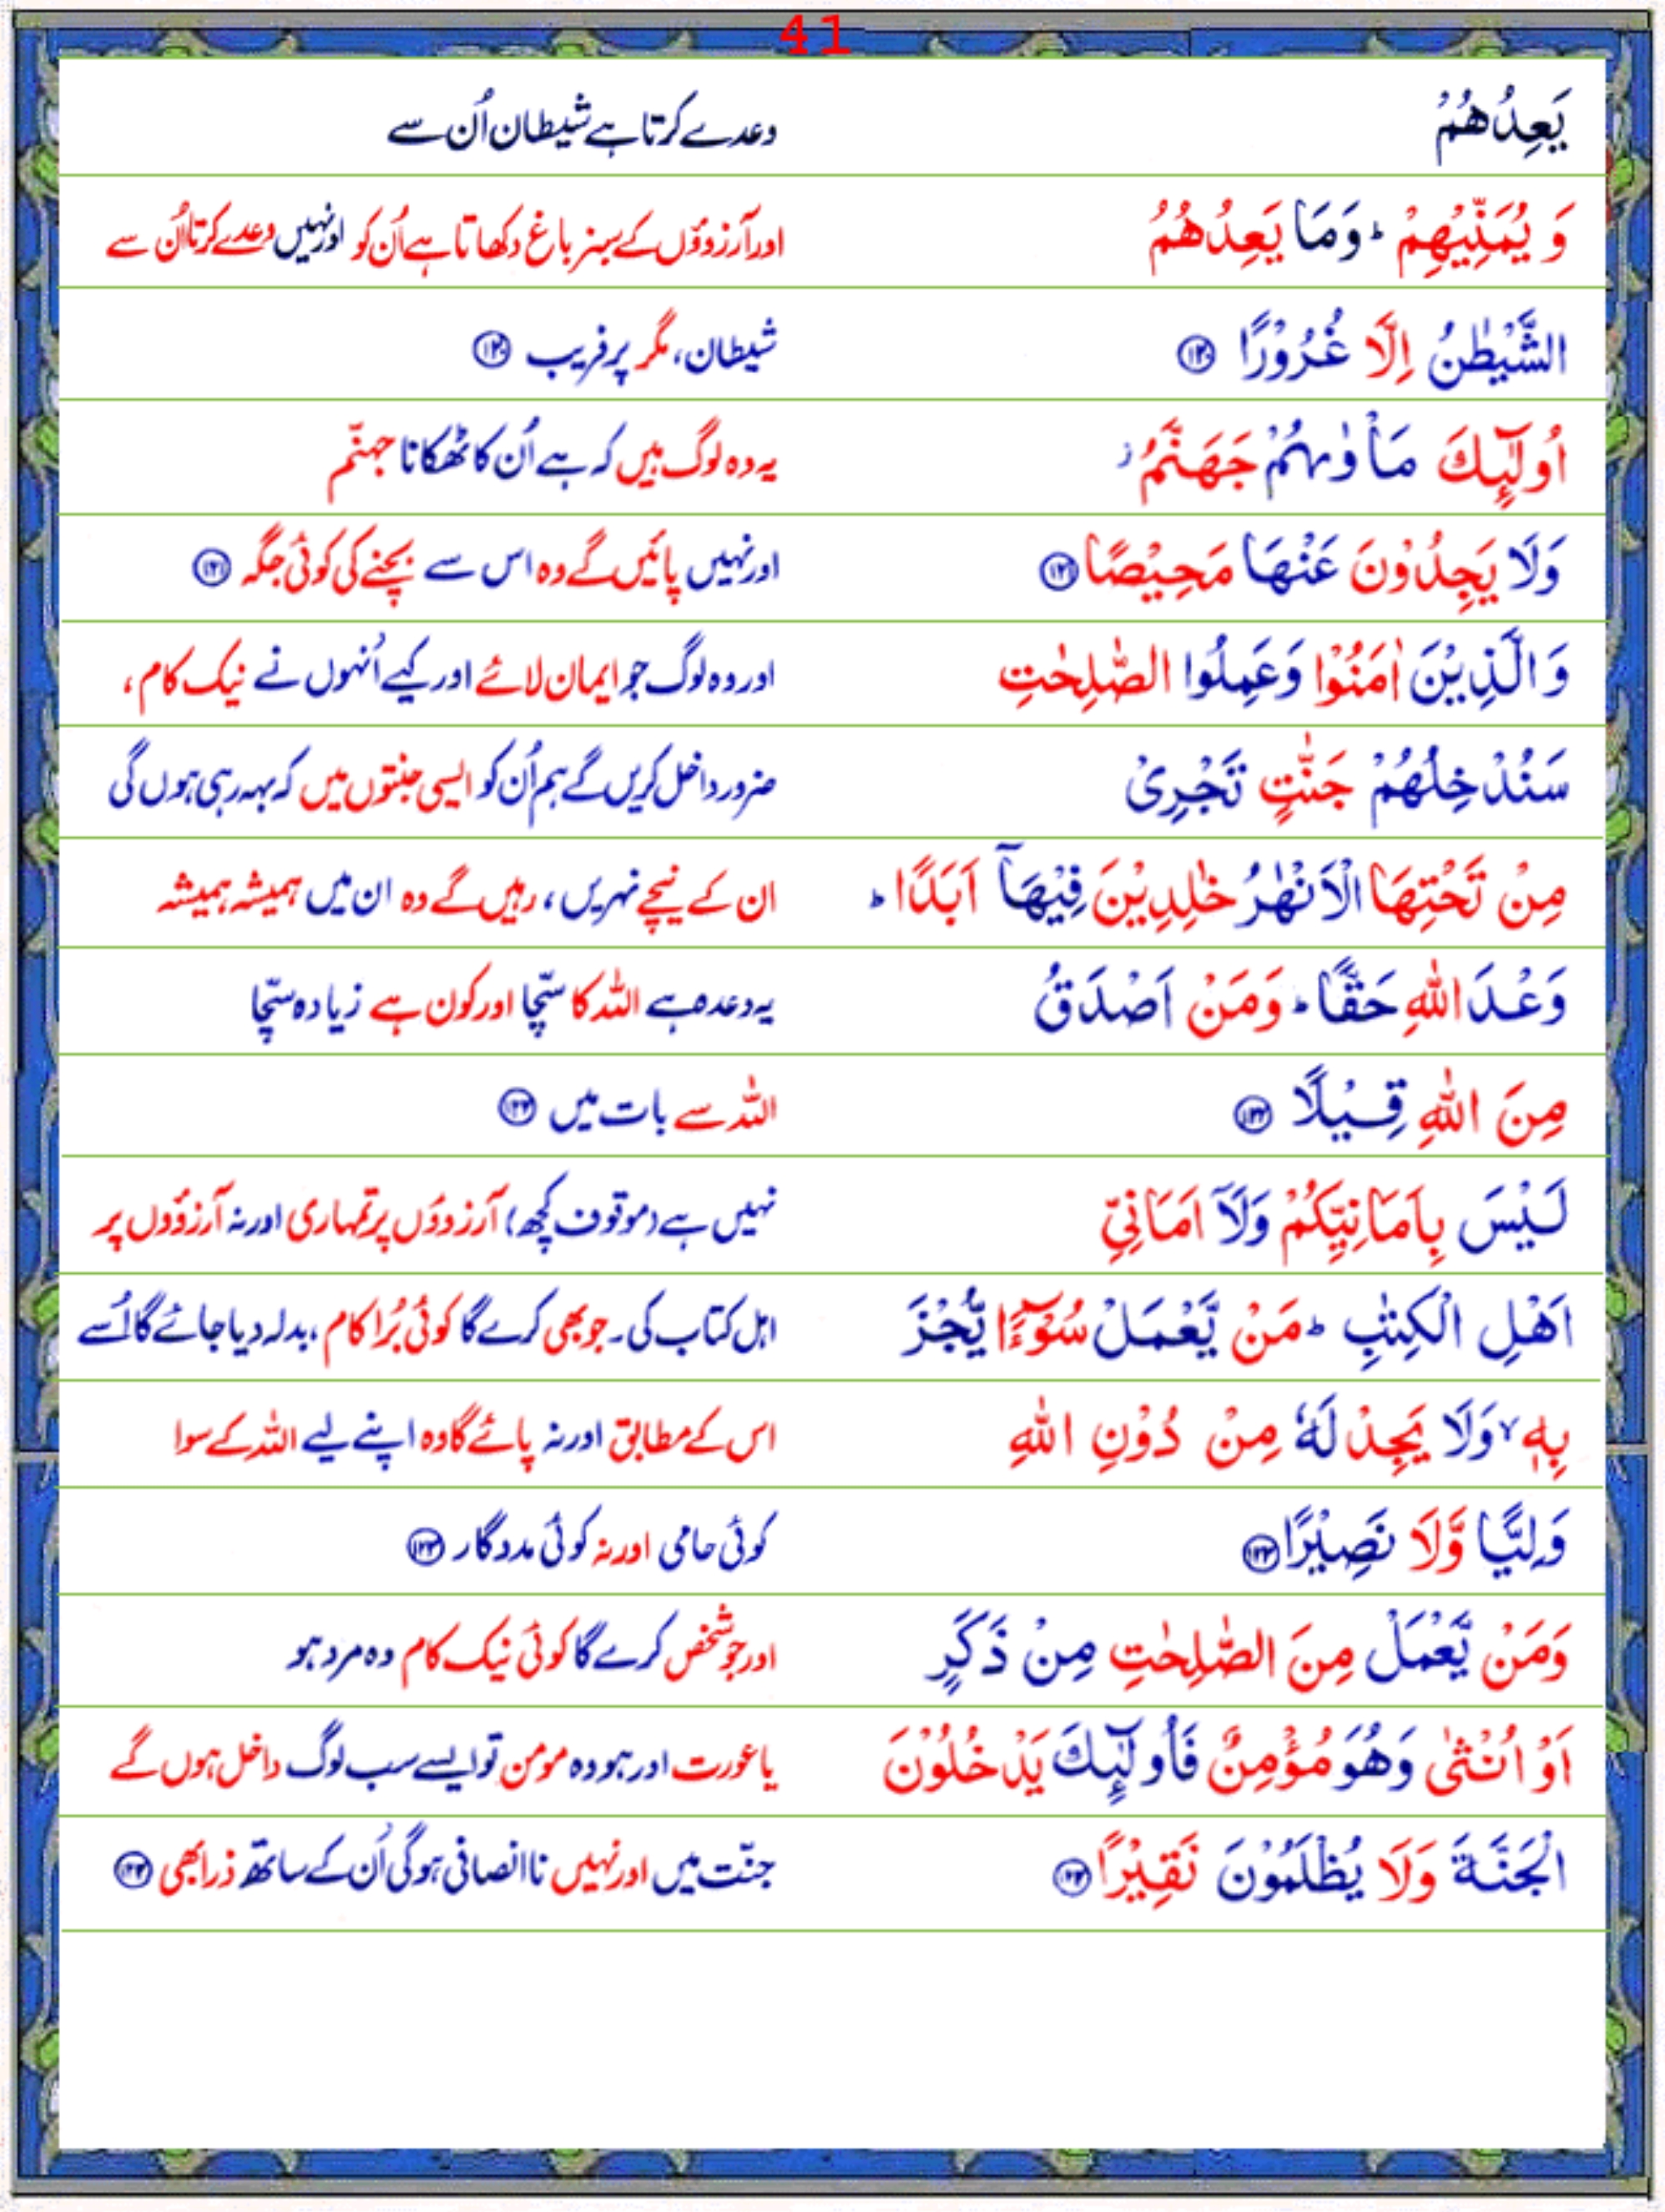 41
يَعِدُهُمْ وعدے کرتا ہے شیطان اُن سے
وَ يُمَنِّيْهِمْ ؕ وَمَا يَعِدُهُمُ اور آرزوؤں کے سبز باغ دکھاتا ہے اُن کو اور نہیں وعدے کرتا اُن سے
الشَّيْطٰنُ اِلَّا غُرُوْرًا ﴿۱۲۰﴾ شیطان، مگر پُرفریب ﴿۱۲۰﴾
اُولٰٓئِكَ مَاْوٰىهُمْ جَهَنَّمُ ؗ یہ وہ لوگ ہیں کہ ہے اُن کا ٹھکانا جہنّم
وَلَا يَجِدُوْنَ عَنْهَا مَحِيْصًا ﴿۱۲۱﴾ اور نہیں پائیں گے وہ اس سے بچنے کی کوئی جگہ ﴿۱۲۱﴾
وَالَّذِيْنَ اٰمَنُوْا وَعَمِلُوا الصّٰلِحٰتِ اور وہ لوگ جو ایمان لائے اور کیے اُنہوں نے نیک کام،
سَنُدْخِلُهُمْ جَنّٰتٍ تَجْرِىْ ضرور داخل کریں گے ہم اُن کو ایسی جنتوں میں کہ بہہ رہی ہوں گی
مِنْ تَحْتِهَا الْاَنْهٰرُ خٰلِدِيْنَ فِيْهَاۤ اَبَدًا ؕ ان کے نیچے نہریں، رہیں گے وہ ان میں ہمیشہ ہمیشہ
وَعْدَ اللّٰهِ حَقًّا ؕ وَمَنْ اَصْدَقُ یہ وعدہ ہے اللہ کا سچّا اور کون ہے زیادہ سچّا
مِنَ اللّٰهِ قِيْلًا ﴿۱۲۲﴾ اللہ سے بات میں ﴿۱۲۲﴾
لَيْسَ بِاَمَانِيِّكُمْ وَلَاۤ اَمَانِىِّ نہیں ہے (موقوف کچھ) آرزوؤں پر تمہاری اور نہ آرزوؤں پر
اَهْلِ الْكِتٰبِ ؕ مَنْ يَّعْمَلْ سُوْٓءًا يُّجْزَ اہل کتاب کی۔ جو بھی کرے گا کوئی بُرا کام، بدلہ دیا جائے گا اُسے
بِهٖ ۙ وَلَا يَجِدْ لَهٗ مِنْ دُوْنِ اللّٰهِ اس کے مطابق اور نہ پائے گا وہ اپنے لیے اللہ کے سوا
وَلِيًّا وَّلَا نَصِيْرًا ﴿۱۲۳﴾ کوئی حامی اور نہ کوئی مددگار ﴿۱۲۳﴾
وَمَنْ يَّعْمَلْ مِنَ الصّٰلِحٰتِ مِنْ ذَكَرٍ اور جو شخص کرے گا کوئی نیک کام وہ مرد ہو
اَوْ اُنْثٰى وَهُوَ مُؤْمِنٌ فَاُولٰٓئِكَ يَدْخُلُوْنَ یا عورت اور ہو وہ مومن تو ایسے سب لوگ داخل ہوں گے
الْجَنَّةَ وَلَا يُظْلَمُوْنَ نَقِيْرًا ﴿۱۲۴﴾ جنّت میں اور نہیں ناانصافی ہوگی اُن کے ساتھ ذرا بھی ﴿۱۲۴﴾